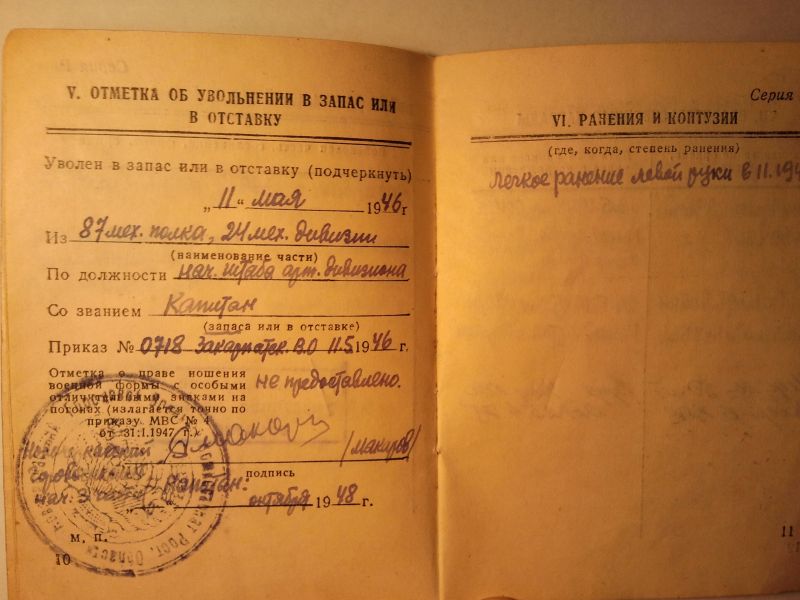 V. ОТМЕТКА ОБ УВОЛЬНЕНИИ В ЗАПАС ИЛИ
В ОТСТАВКУ
Уволен в запас или в отставку (подчеркнуть)
„11“ мая 1946 г
Из 87 мех. полка, 24 мех. дивизии
(наименование части)
По должности нач. штаба арт. дивизиона
Со званием Капитан
(запаса или в отставке)
Приказ № 0718 Закарпатск. В.О 11.5.1946 г.
Отметка о праве ношения
военной формы с особыми
отличительными знаками на
погонах (излагается точно по
приказу МВС № 4
от 31.1.1947 г.)
не предоставлено.
подпись
нач. 3 части Капитан:
октября 1948 г.
м. п.
10
Серия
VI. РАНЕНИЯ И КОНТУЗИИ
(где, когда, степень ранения)
легкое ранение левой руки в 11.194
11